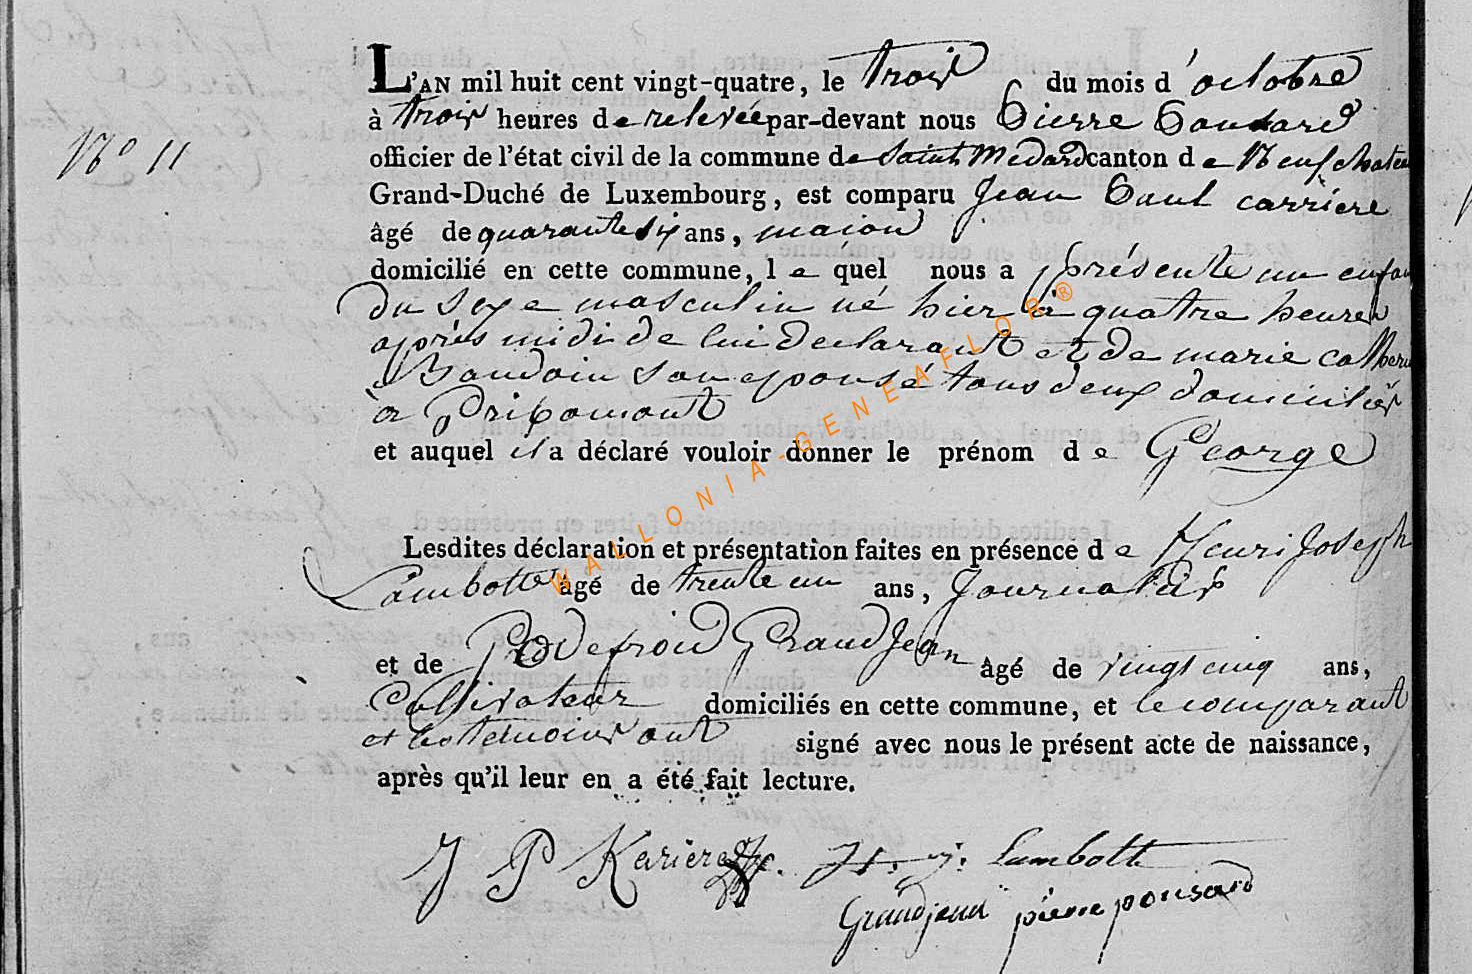 N° 11
L'AN mil huit cent vingt-quatre, le trois du mois d'octobre
à trois heures de relevée par-devant nous Pierre Ponsard
officier de l'état civil de la commune de Saint Medard canton de Neufchateau
Grand-Duché de Luxembourg, est comparu Jean Paul carriere
âgé de quarante six ans, maçon
domicilié en cette commune, le quel nous a présenté un enfan
du sexe masculin né hier à quatre heures
après midi de lui declarant et de marie cather
Baudoin son epouse tous deux domiciliés
a
et auquel il a déclaré vouloir donner le prénom de George
Lesdites déclaration et présentation faites en présence de Henri Joseph
Lambotte âgé de trente un ans, Journalier
et de Godefroid GrandJean âgé de vingt cinq ans,
Cultivateur domiciliés en cette commune, et le comparant
et les temoins ont signé avec nous le présent acte de naissance,
après qu'il leur en a été fait lecture.
J P Kariere H. j. Lambotte
Grandjean pierre ponsard
WALLONIA-GENEAFLOR®